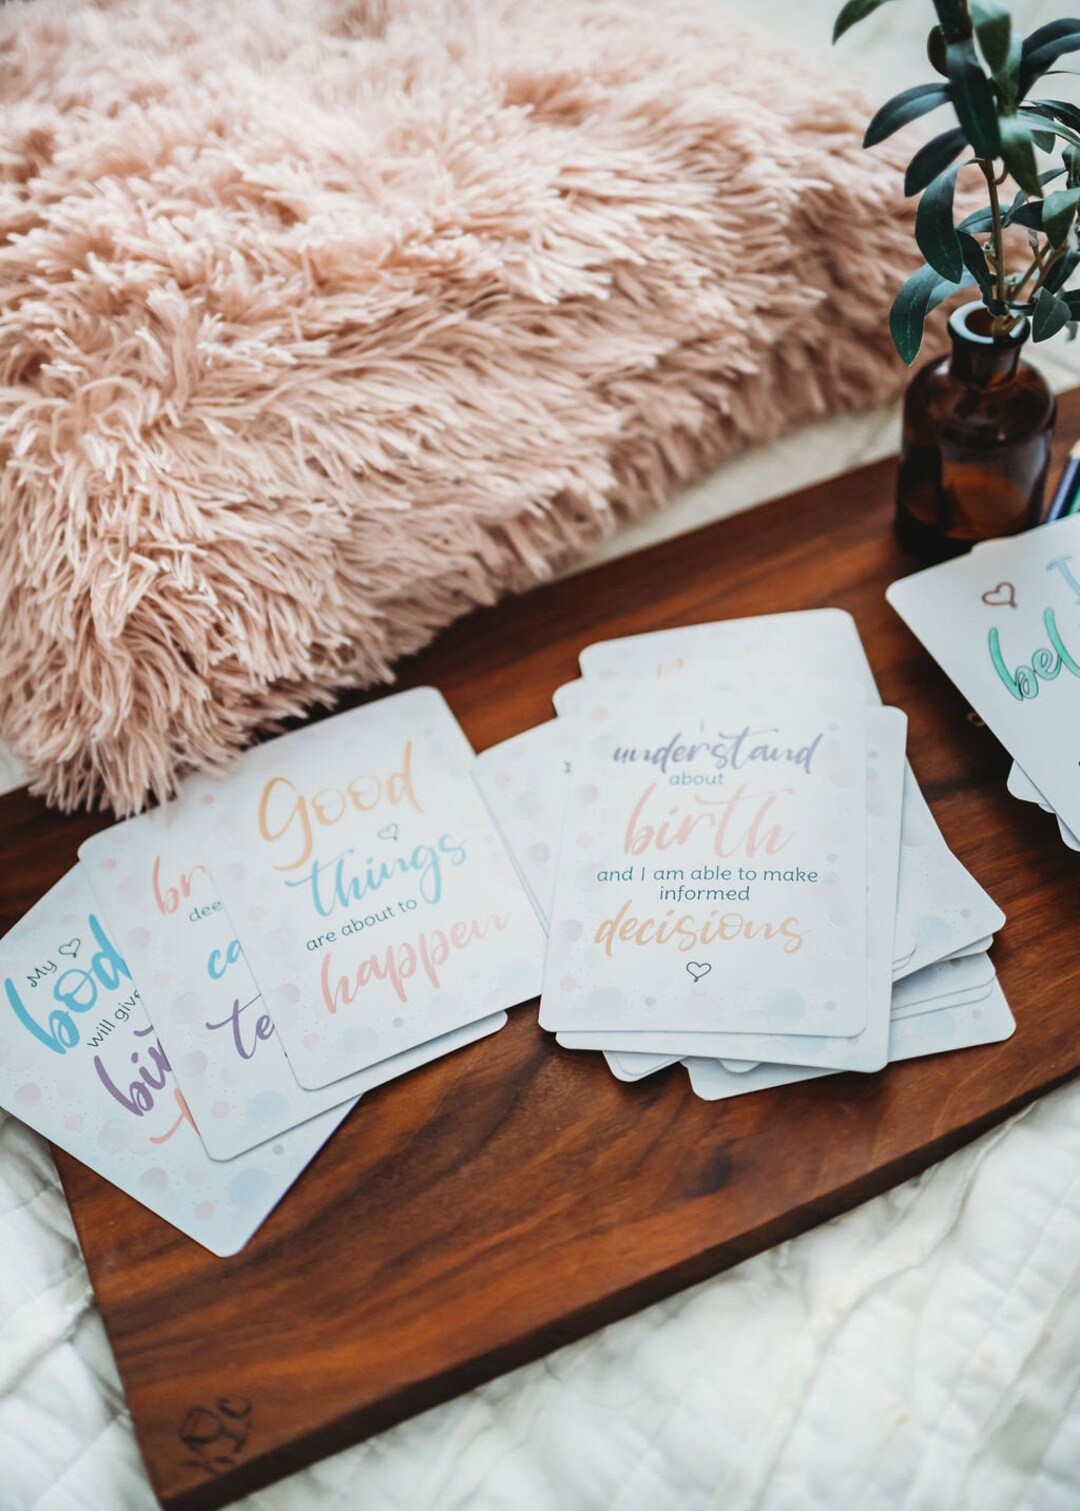 My
bod
will give
bir
br
dee
ca
te
Good
things
are about to
happen
understand
about
birth
and I am able to make
informed
decisions
I
bel